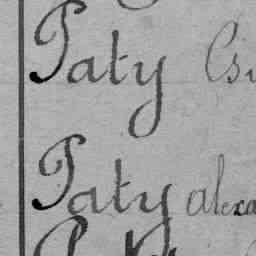 Paty
Paty alexa